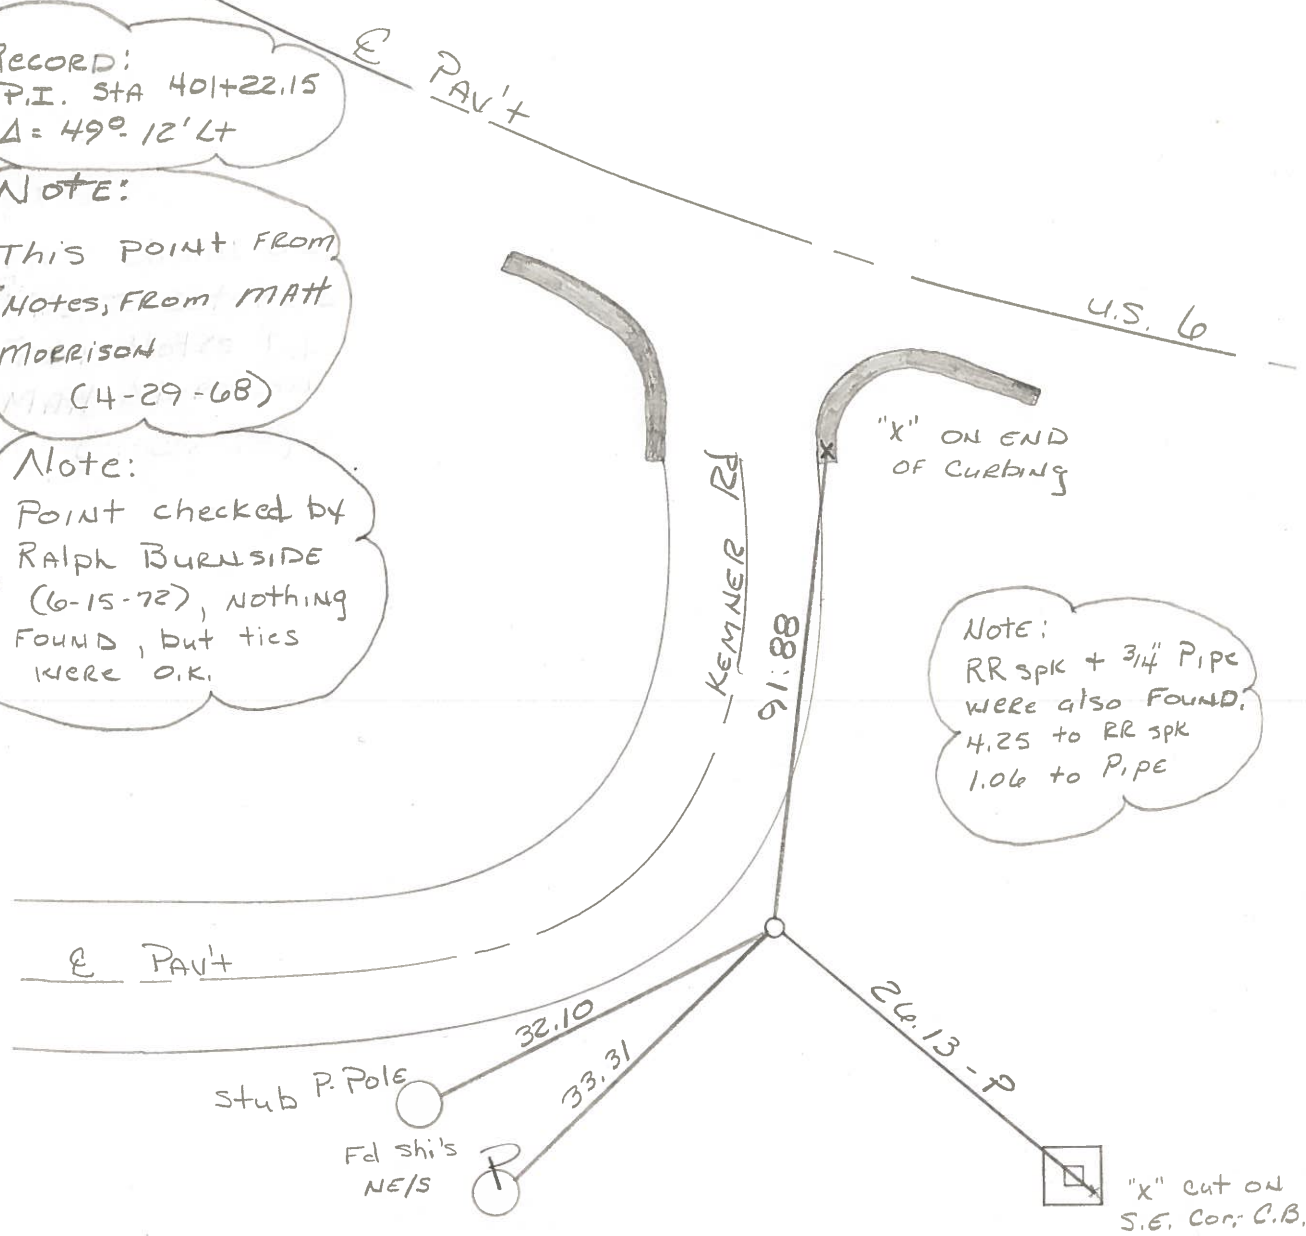 RECORD:
P.I. StA 401+22.15
Δ= 49°-12' Lt
NOTE:
This POINt FROM
NOtes, FROM MAtt
MORRISON
(4-29-68)
Note:
POINt checked by
RAlph BURNSIDE
(6-15-72), NOTHING
FOUND, but ties
WERE O.K.
℄ PAV't
U.S. 6
"X" ON END
OF CURBING
KEMNER Rd
91.88
NOTE:
RR spk + 3/4" PIPE
WERE also FOUND.
4.25 to RR spk
1.06 to PIPE
℄ PAV't
32.10
33.31
26.13 - P
Stub P. POLE
Fd Shi's
NE/S
P
"X" cut on
S.E. Cor. C.B.